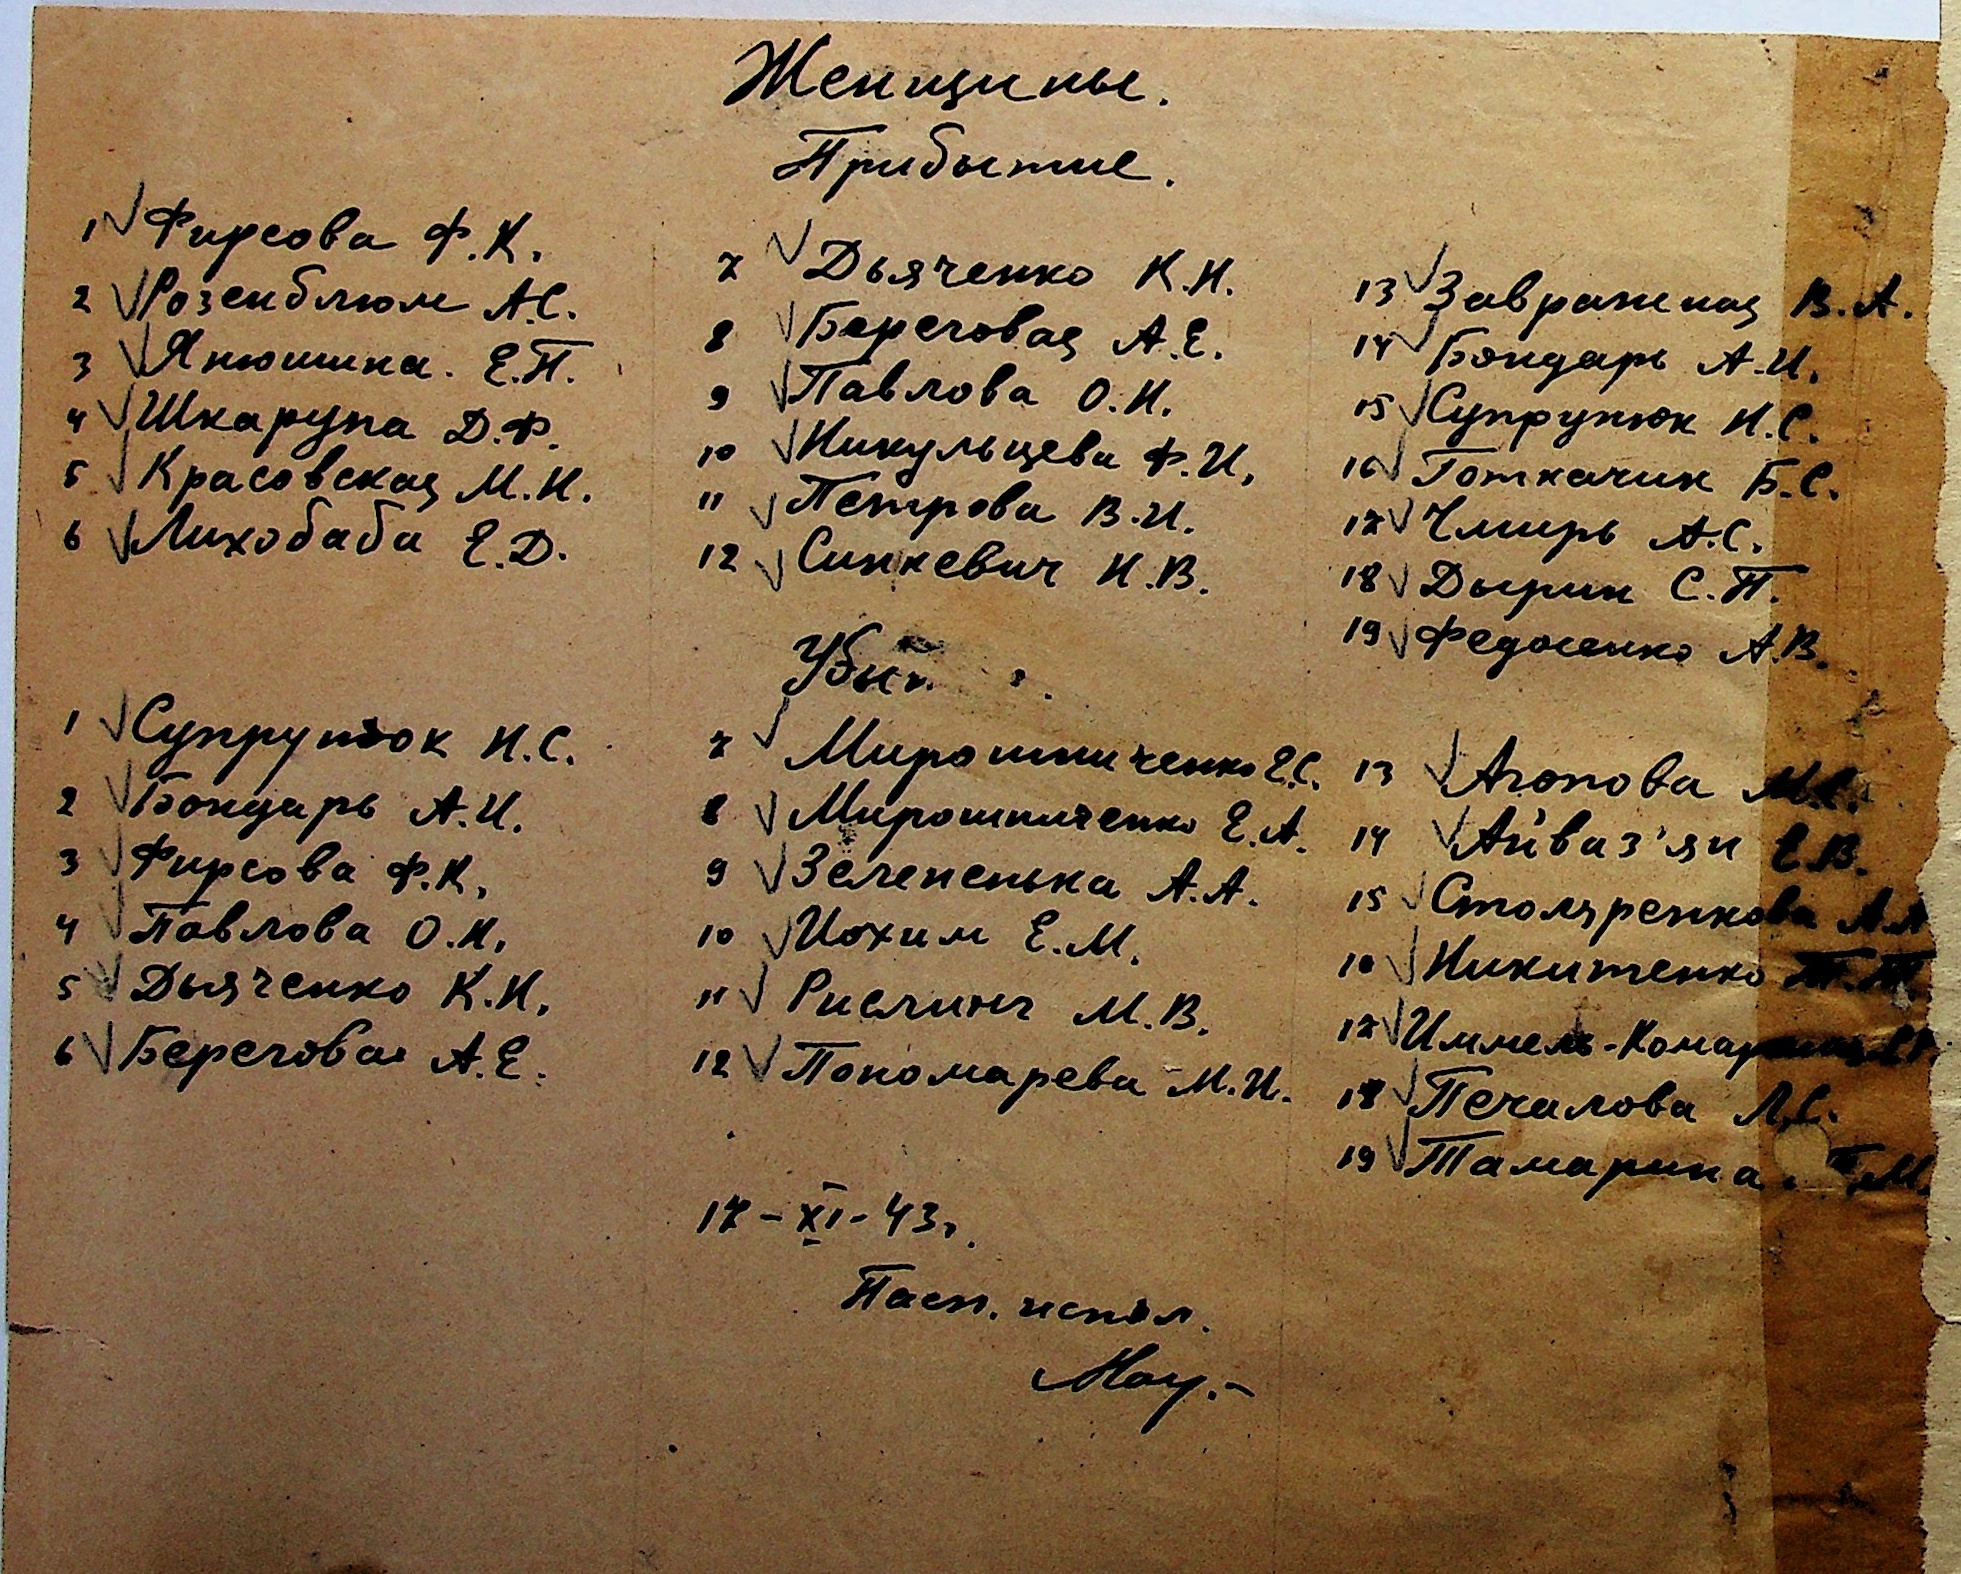 Женщины.
Прибытие.
1 Фирсова Ф.К.
2 Розенблюм А.С.
3 Янюшина. Е.П.
4 Шкарупа Д.Ф.
5 Красовская М.И.
6 Лихобаба Е.Д.
7 Дьяченко К.И.
8 Береговая А.Е.
9 Павлова О.И.
10 Никульцева Ф.И.
11 Петрова В.И.
12 Синкевич Н.В.
13 Завражная В.А.
14 Бондарь А.И.
15 Супрунюк Н.С.
16 Готкачик Б.С.
17 Чмирь А.С.
18 Дырин С.П.
19 Федосенко А.В.
1 Супрунюк Н.С.
2 Бондарь А.И.
3 Фирсова Ф.К.
4 Павлова О.И.
5 Дьяченко К.И.
6 Береговая А.Е.
7 Мирошниченко Е.С.
8 Мирошниченко Е.А.
9 Зелененька А.А.
10 Иохим Е.М.
11 Рислинг М.В.
12 Пономарева М.И.
13 Агопова
14 Айваз'ян Е.В.
15 Столяренкова
16 Никитенко Т.Т.
17
18 Печалова Л.С.
19 Тамарина. Т.М.
17-XI-43г.
Пасп. испол.